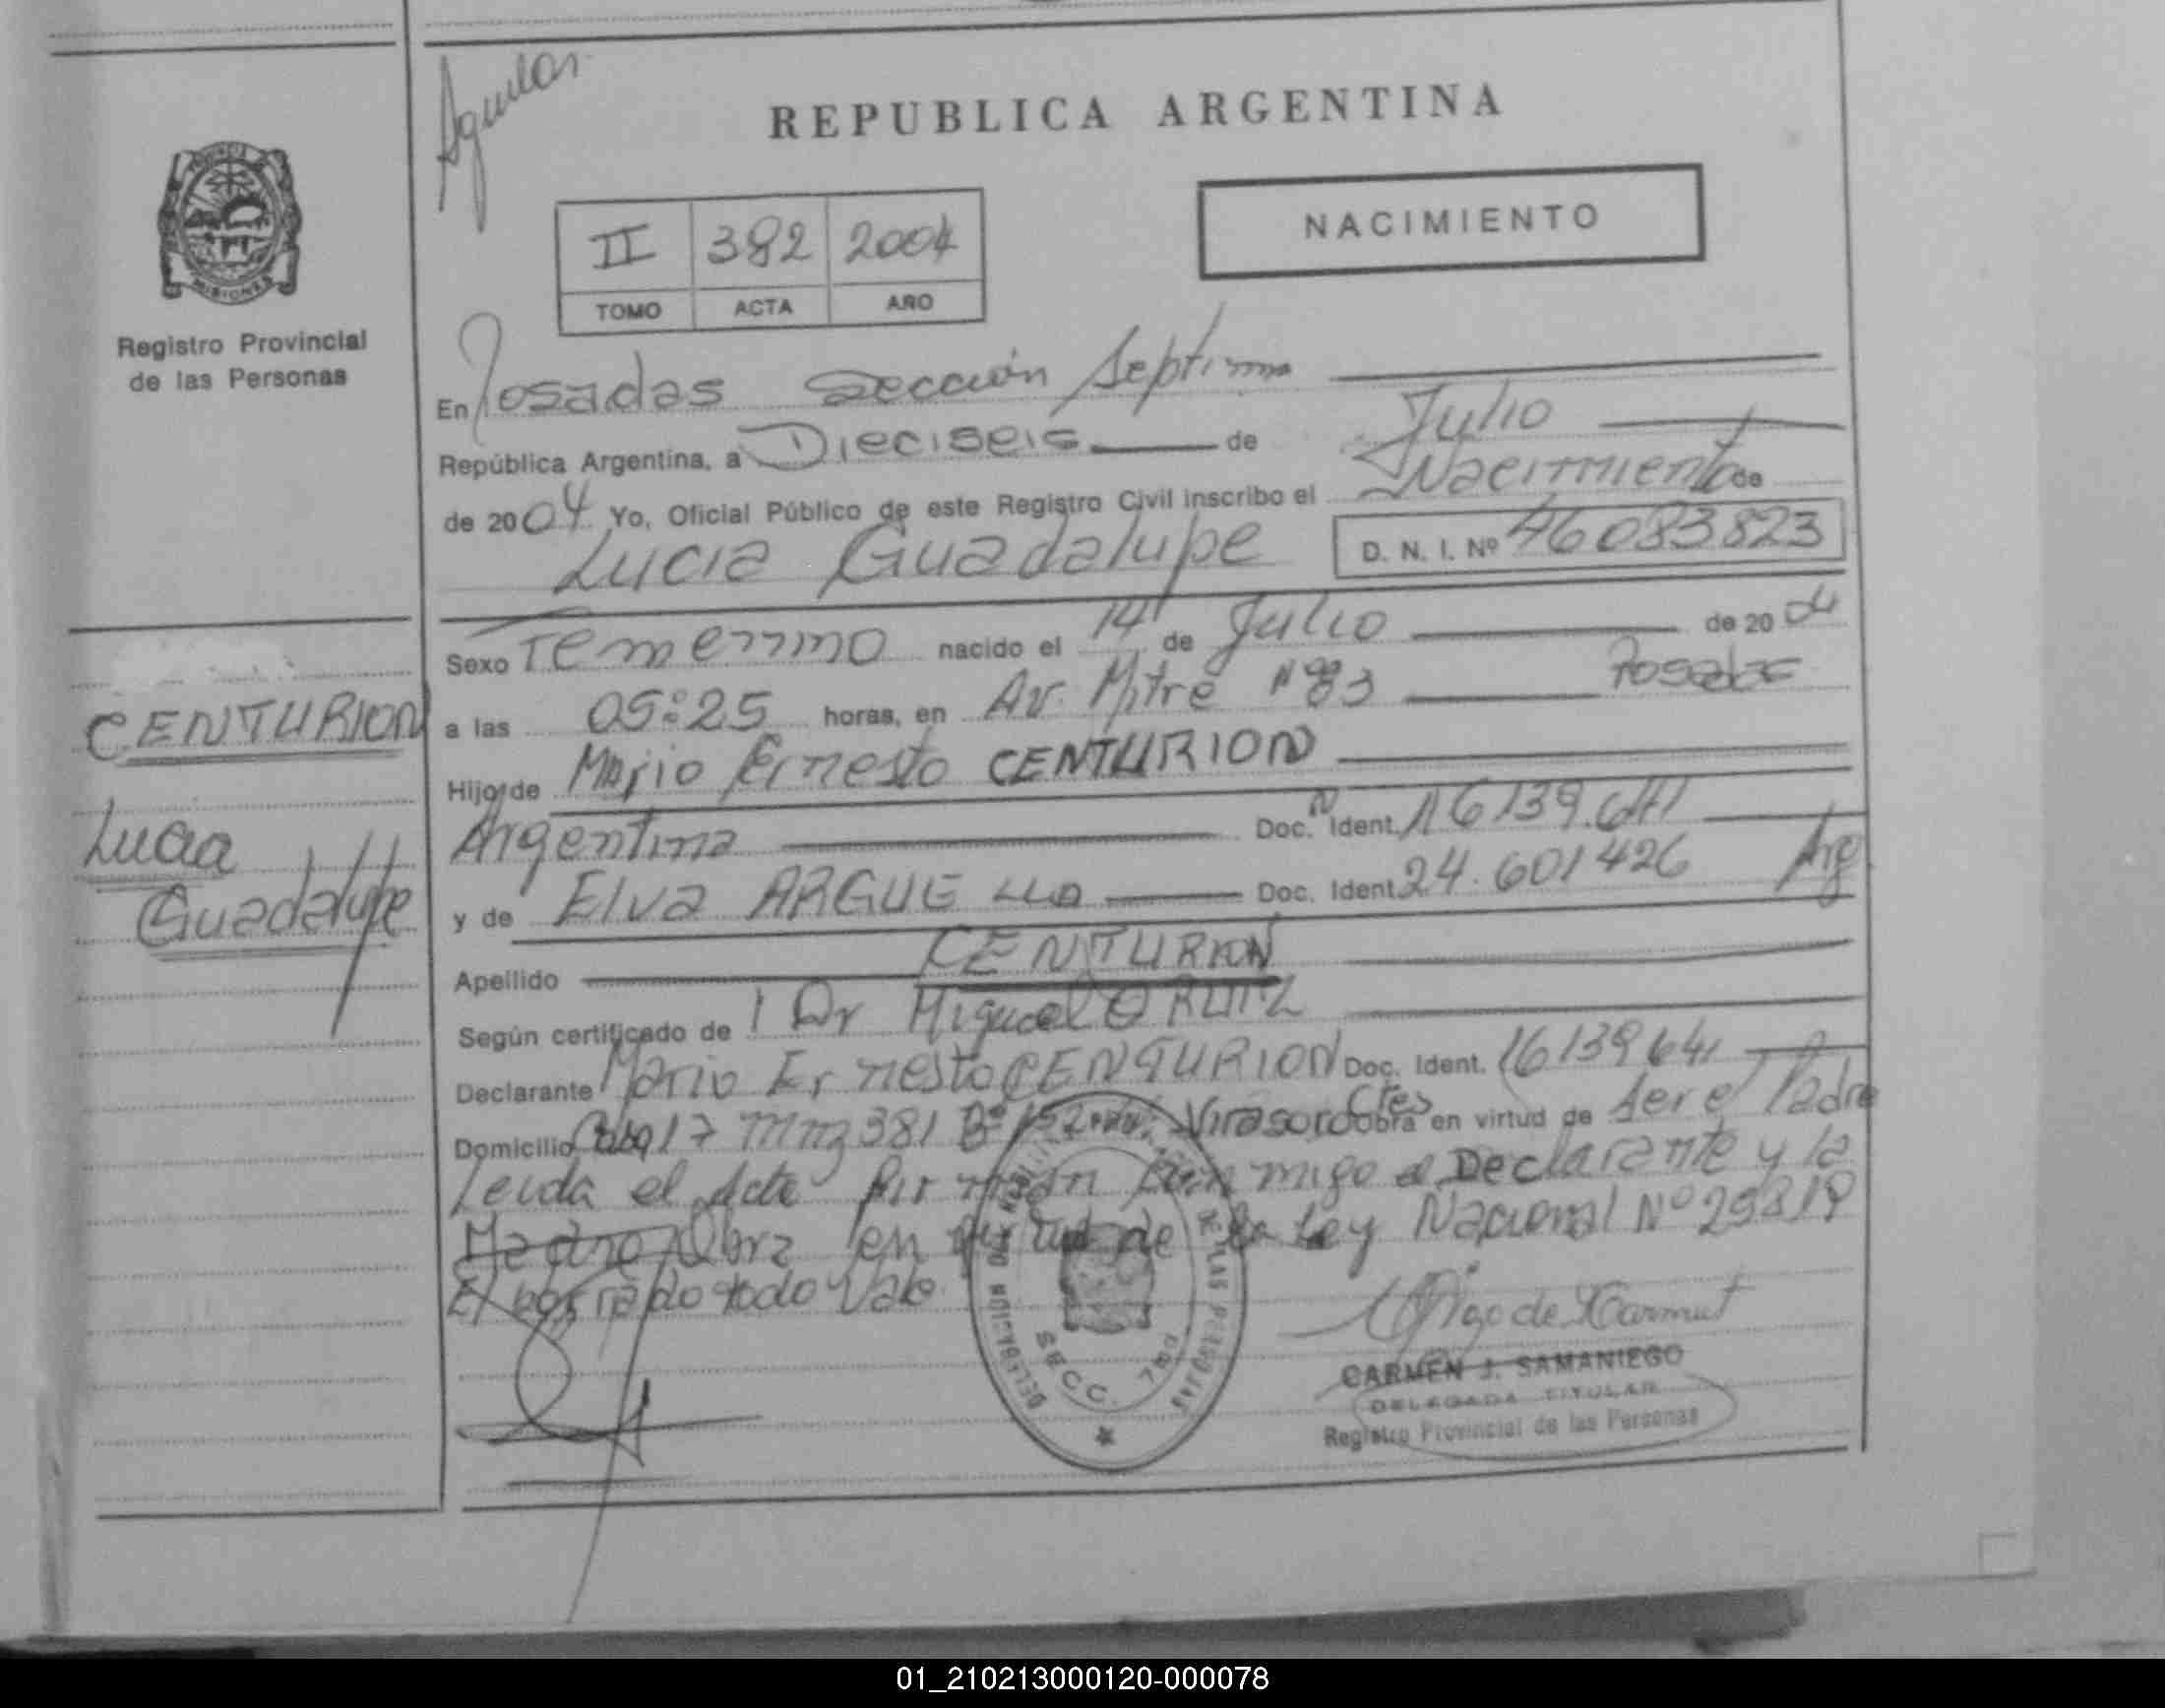 Aguilar
REPUBLICA ARGENTINA
NACIMIENTO
II 382 2004
TOMO ACTA AÑO
Registro Provincial
de las Personas
MISIONES
En Posadas Sección Septima
República Argentina, a Dieciseis de Julio
de 2004 Yo, Oficial Público de este Registro Civil inscribo el Nacimiento de
Lucia Guadalupe D. N. I. Nº 46083823
Sexo Femenino nacido el 14 de Julio de 2004
a las 05:25 horas, en Av. Mitre Nº 83 Posadas
CENTURION
Lucia
Guadalupe
Hijo de Mario Ernesto CENTURION
Argentina Doc. Ident. 16139.641
y de Elva ARGUELLO Doc. Ident. 24.601426 Arg
Apellido CENTURION
Según certificado de Dr Miguel O RUIZ
Declarante Mario Ernesto CENTURION Doc. Ident. 16139641
Domicilio 17 Mnz 381 Bº Virasoro Ctes obra en virtud de ser el Padre
Leida el Acta firman conmigo el Declarante y la
Madre Obra en virtud de la Ley Nacional Nº
El borrado todo Vale
DELEGACION
DE LAS PERSONAS
SECC. 7ma
CARMEN J. SAMANIEGO
DELEGADA TITULAR
Registro Provincial de las Personas
01_210213000120-000078